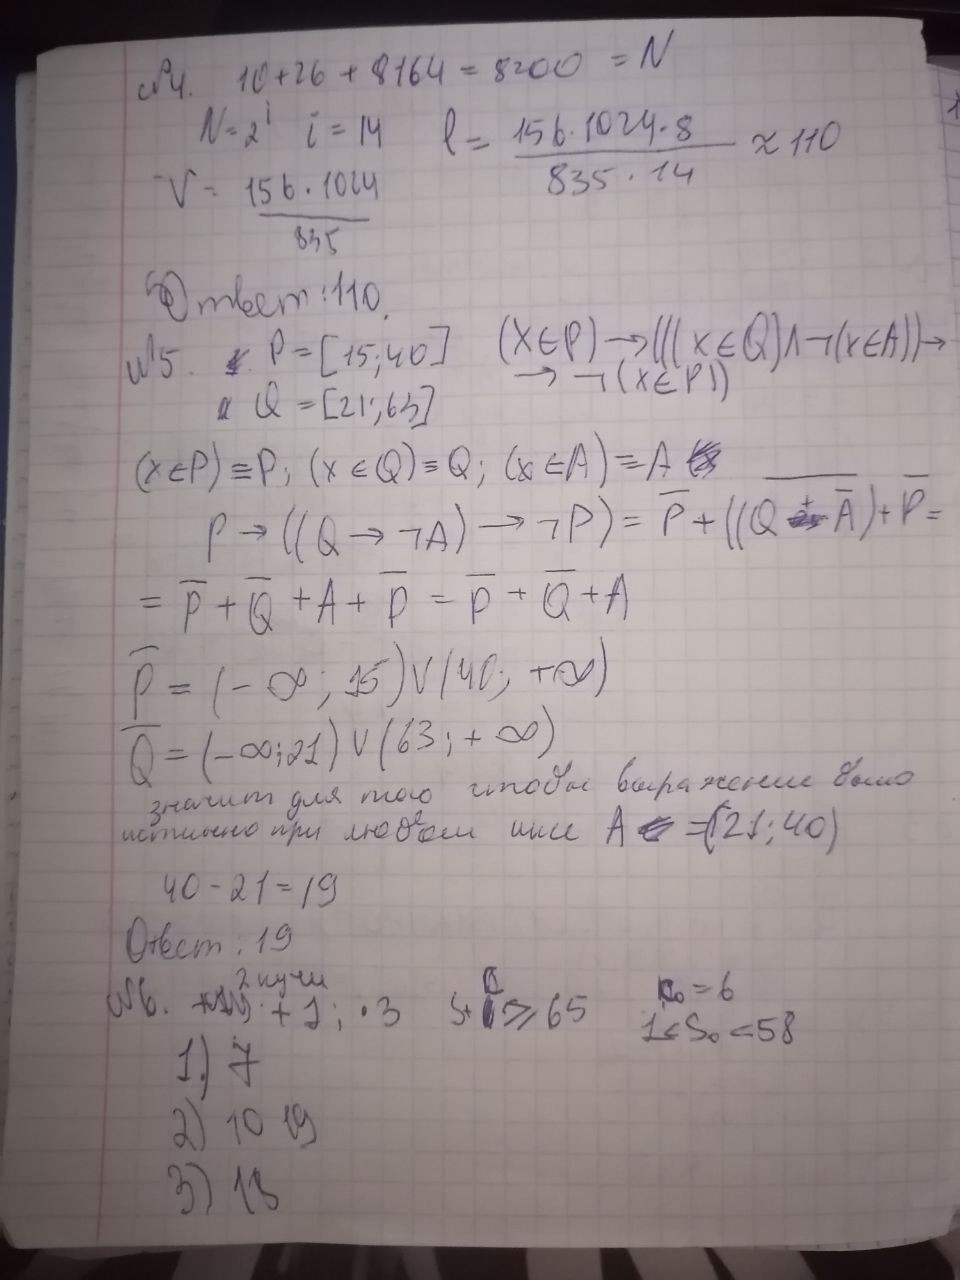 №4. 10+26+8164=8200 =N
N=2^i i=14 l= 156·1024·8 / 835·14 ≈110
V= 156·1024 / 835
Ответ:110.
№5. P=[15;40] (x∈P)→(((x∈Q)∧¬(x∈A))→
→¬(x∈P))
Q=[21;63]
(x∈P)≡P; (x∈Q)≡Q; (x∈A)≡A
P→((Q→¬A)→¬P)= P̅+((Q + A̅)+P̅=
= P̅+Q̅+A+P̅=P̅+Q̅+A
P̅=(-∞;15)∨(40;+∞)
Q̅=(-∞;21)∨(63;+∞)
значит для того чтобы выражение было
истинно при любом иксе A =(21;40)
40-21=19
Ответ:19
2 кучи
№6. +1; ·3 S+ ≥65 =6
1≤S₀≤58
1) 7
2) 10 19
3) 18